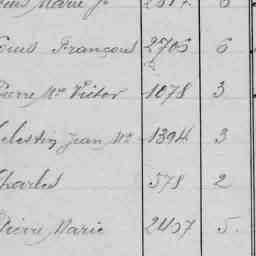 Marie Jh 2517. 6
François 2705 6
Pierre Me Victor 1078 3
Jean Me 1394 3
Charles 578 2
Pierre Marie 2457 5.